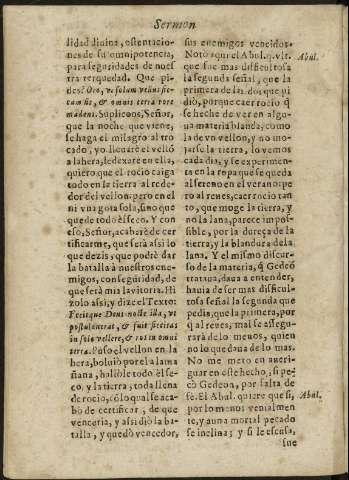 Sermon
lidad diuina, ostentacio-
nes de su omnipotencia,
para seguridades de nues
tra terquedad. Que pi-
des? Oro, vt solum vellus sic-
cum sit, & omnis terra rore
madens. Suplicoos, Señor,
que la noche que viene,
se haga el milagro al tro
cado, yo lleuarè el vellõ
a la hera, le dexare en ella,
quiero que el rocio caiga
todo en la tierra al rede-
dor del vellon: pero en el
ni vna gota sola, sino que
quede todo èl seco. Y con
eso, Señor, acabarè de cer
tificarme, que serà assi lo
que dezis, y que podrè dar
la batalla à nuestros ene-
migos, con seguridad, de
que serà mia la vitoria. Hi
zolo assi, y dize el Texto:
Fecitque Deus nocte illa, vt
postulauerat, & fuit siccitas
in solo vellere, & ros in omni
terra. Puso el vellon en la
hera, boluiò por el a la ma
ñana, hallòle todo èl se-
co, y la tierra, toda llena
de rocio, cõ lo qual se aca-
bò de certificar, de que
venceria, y assi diò la ba-
talla, y quedò vencedor,
sus enemigos vencidos.
Notò aqui el Abul. q. vlt.
Abul.
que fue mas dificultosa
la segunda señal, que la
primera de la dos que pi
diò, porque caer rocio q̃
se heche de ver en algu-
na materia blanda, como
la de vn vellon, y no mo-
jarse la tierra, lo vemos
cada dia, y se experimen-
ta en la ropa que se queda
al sereno en el verano: pe
ro al reues, caer rocio tan
to, que moge la tierra, y
no la lana, parece impos-
sible, por la dureça de la
tierra, y la blandura de la
lana. Y el mismo discur-
so de la materia, q̃ Gedeõ
trataua, daua a entender,
hauia de ser mas dificul-
tosa señal la segunda que
pedia, que la primera, por
q̃ al reues, mal se assegu-
rarà de lo menos, quien
no lo queda ua de lo mas.
No me meto en aueri-
guar en este hecho, si pe-
cò Gedeon, por falta de
fè. El Abul. quiere que si,
Abul.
por lo menos venialmen
te, y a vna mortal pecado
se inclina; y si le escusa,
fue